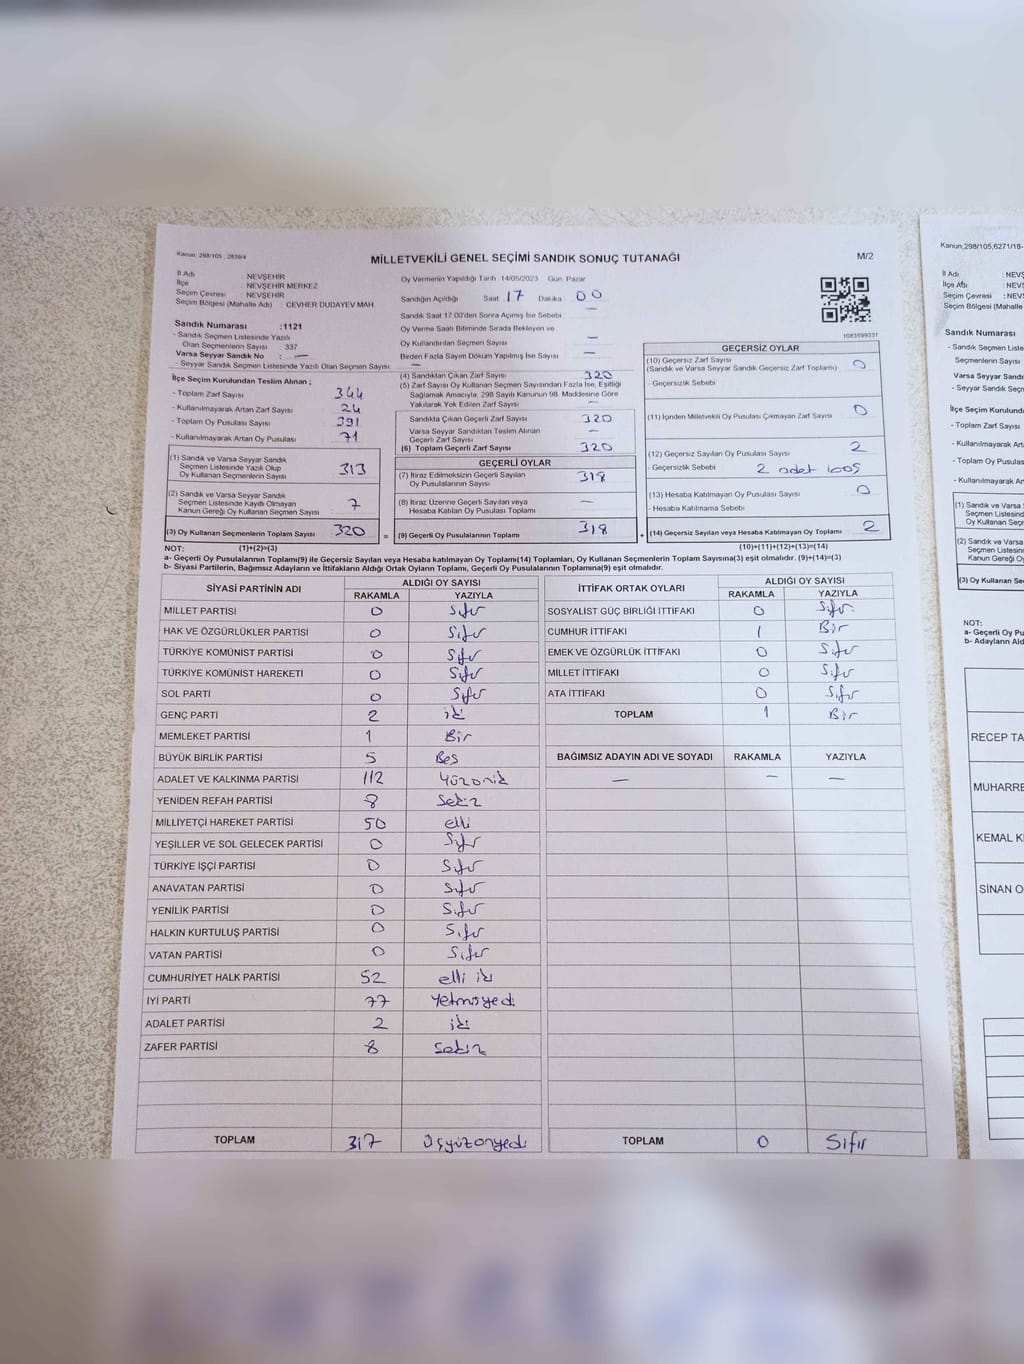 Kanun: 298/105 , 2839/4
MİLLETVEKİLİ GENEL SEÇİMİ SANDIK SONUÇ TUTANAĞI
M/2
İl Adı : NEVŞEHİR
İlçe : NEVŞEHİR MERKEZ
Seçim Çevresi : NEVŞEHİR
Seçim Bölgesi (Mahalle Adı) CEVHER DUDAYEV MAH.
Sandık Numarası :1121
- Sandık Seçmen Listesinde Yazılı
Olan Seçmenlerin Sayısı 337
Varsa Seyyar Sandık No : —
- Seyyar Sandık Seçmen Listesinde Yazılı Olan Seçmen Sayısı —
İlçe Seçim Kurulundan Teslim Alınan ;
- Toplam Zarf Sayısı 344
- Kullanılmayarak Artan Zarf Sayısı 24
- Toplam Oy Pusulası Sayısı 391
- Kullanılmayarak Artan Oy Pusulası 71
(1) Sandık ve Varsa Seyyar Sandık
Seçmen Listesinde Yazılı Olup
Oy Kullanan Seçmenlerin Sayısı 313
(2) Sandık ve Varsa Seyyar Sandık
Seçmen Listesinde Kayıtlı Olmayan
Kanun Gereği Oy Kullanan Seçmen Sayısı 7
(3) Oy Kullanan Seçmenlerin Toplam Sayısı 320
Oy Vermenin Yapıldığı Tarih 14/05/2023 Gün: Pazar
Sandığın Açıldığı Saat 17 Dakika 00
Sandık Saat 17:00'den Sonra Açılmış İse Sebebi —
Oy Verme Saati Bitiminde Sırada Bekleyen ve
Oy Kullandırılan Seçmen Sayısı —
Birden Fazla Sayım Döküm Yapılmış İse Sayısı —
(4) Sandıktan Çıkan Zarf Sayısı 320
(5) Zarf Sayısı Oy Kullanan Seçmen Sayısından Fazla İse, Eşitliği
Sağlamak Amacıyla, 298 Sayılı Kanunun 98. Maddesine Göre
Yakılarak Yok Edilen Zarf Sayısı —
Sandıkta Çıkan Geçerli Zarf Sayısı 320
Varsa Seyyar Sandıktan Teslim Alınan
Geçerli Zarf Sayısı —
(6) Toplam Geçerli Zarf Sayısı 320
GEÇERLİ OYLAR
(7) İtiraz Edilmeksizin Geçerli Sayılan
Oy Pusulalarının Sayısı 318
(8) İtiraz Üzerine Geçerli Sayılan veya
Hesaba Katılan Oy Pusulası Toplamı —
= (9) Geçerli Oy Pusulalarının Toplamı 318
1683599331
GEÇERSİZ OYLAR
(10) Geçersiz Zarf Sayısı
(Sandık ve Varsa Seyyar Sandık Geçersiz Zarf Toplamı) 0
- Geçersizlik Sebebi
(11) İçinden Milletvekili Oy Pusulası Çıkmayan Zarf Sayısı 0
(12) Geçersiz Sayılan Oy Pusulası Sayısı 2
- Geçersizlik Sebebi 2 adet
(13) Hesaba Katılmayan Oy Pusulası Sayısı 0
- Hesaba Katılmama Sebebi
+ (14) Geçersiz Sayılan veya Hesaba Katılmayan Oy Toplamı 2
NOT: (1)+(2)=(3) (10)+(11)+(12)+(13)=(14)
a- Geçerli Oy Pusulalarının Toplamı(9) ile Geçersiz Sayılan veya Hesaba katılmayan Oy Toplamı(14) Toplamları, Oy Kullanan Seçmenlerin Toplam Sayısına(3) eşit olmalıdır. (9)+(14)=(3)
b- Siyasi Partilerin, Bağımsız Adayların ve İttifakların Aldığı Ortak Oyların Toplamı, Geçerli Oy Pusulalarının Toplamına(9) eşit olmalıdır.
SİYASİ PARTİNİN ADI ALDIĞI OY SAYISI
RAKAMLA YAZIYLA
MİLLET PARTİSİ 0 Sıfır
HAK VE ÖZGÜRLÜKLER PARTİSİ 0 Sıfır
TÜRKİYE KOMÜNİST PARTİSİ 0 Sıfır
TÜRKİYE KOMÜNİST HAREKETİ 0 Sıfır
SOL PARTİ 0 Sıfır
GENÇ PARTİ 2 iki
MEMLEKET PARTİSİ 1 Bir
BÜYÜK BİRLİK PARTİSİ 5 Beş
ADALET VE KALKINMA PARTİSİ 112 Yüzoniki
YENİDEN REFAH PARTİSİ 8 Sekiz
MİLLİYETÇİ HAREKET PARTİSİ 50 elli
YEŞİLLER VE SOL GELECEK PARTİSİ 0 Sıfır
TÜRKİYE İŞÇİ PARTİSİ 0 Sıfır
ANAVATAN PARTİSİ 0 Sıfır
YENİLİK PARTİSİ 0 Sıfır
HALKIN KURTULUŞ PARTİSİ 0 Sıfır
VATAN PARTİSİ 0 Sıfır
CUMHURİYET HALK PARTİSİ 52 elli iki
İYİ PARTİ 77 Yetmişyedi
ADALET PARTİSİ 2 iki
ZAFER PARTİSİ 8 Sekiz
TOPLAM 317 Üçyüzonyedi
İTTİFAK ORTAK OYLARI ALDIĞI OY SAYISI
RAKAMLA YAZIYLA
SOSYALİST GÜÇ BİRLİĞİ İTTİFAKI 0 Sıfır
CUMHUR İTTİFAKI 1 Bir
EMEK VE ÖZGÜRLÜK İTTİFAKI 0 Sıfır
MİLLET İTTİFAKI 0 Sıfır
ATA İTTİFAKI 0 Sıfır
TOPLAM 1 Bir
BAĞIMSIZ ADAYIN ADI VE SOYADI RAKAMLA YAZIYLA
— — —
TOPLAM 0 Sıfır
Kanun;298/105;6271/18-
İl Adı : NEVŞ
İlçe : NEVŞ
Seçim Çevresi : NEVŞ
Seçim Bölgesi (Mahalle
Sandık Numarası
- Sandık Seçmen Liste
Seçmenlerin Sayısı
Varsa Seyyar Sandı
- Seyyar Sandık Seçm
İlçe Seçim Kurulund
- Toplam Zarf Sayısı
- Kullanılmayarak Arta
- Toplam Oy Pusulası
- Kullanılmayarak A
(1) Sandık ve Varsa
Seçmen Listesin
Oy Kullanan Seç
(2) Sandık ve Varsa
Seçmen Listesin
Kanun Gereği O
(3) Oy Kullanan Se
NOT:
a- Geçerli Oy Pu
b- Adayların Ald
RECEP TA
MUHARRE
KEMAL K
SİNAN O